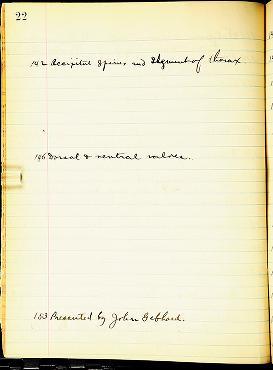 22
142 Occipital spine, and segment of thorax
146 Dorsal & ventral valves.
153 Presented by John Gebhard.